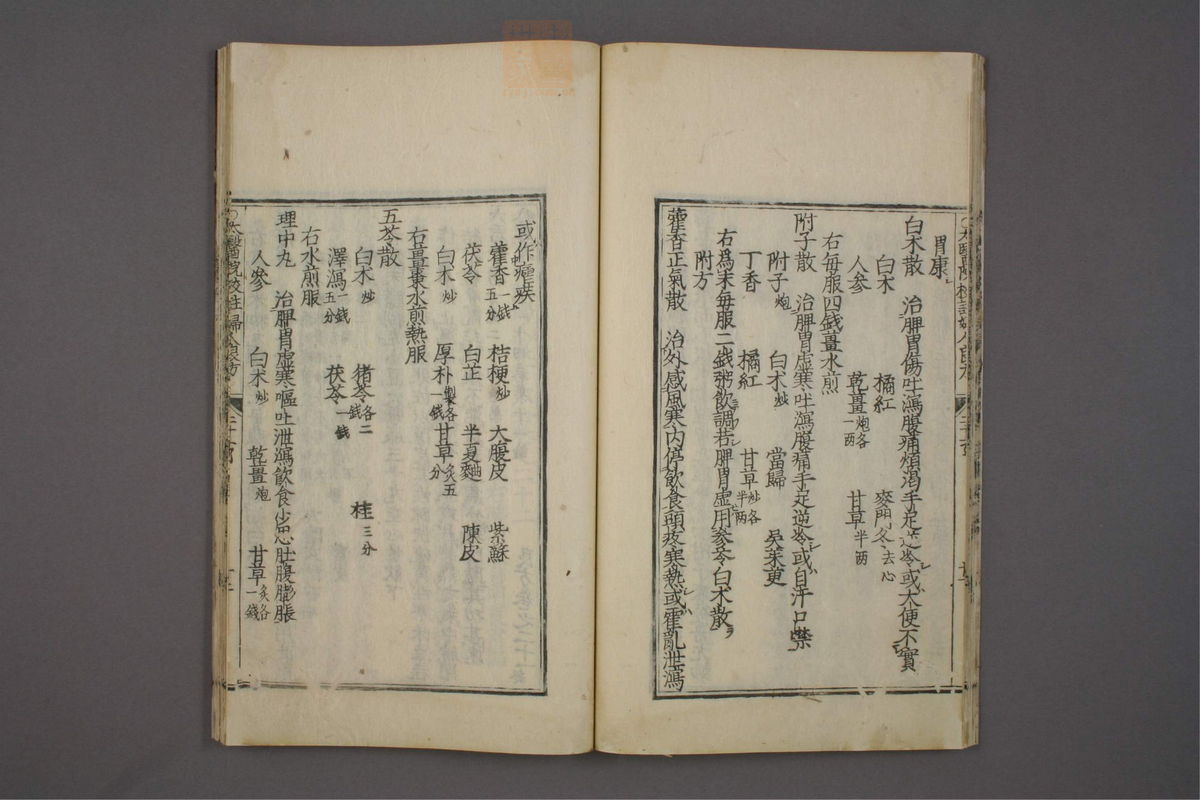 胃康
白朮散　治脾胃傷吐瀉腹痛煩渴手足逆冷或大便不實
白朮　橘紅　麥門冬去心
人參　乾薑炮各一兩　甘草半兩
右每服四錢薑水煎
附子散　治脾胃虛寒吐瀉腹痛手足逆冷或自汗口噤
附子炮　白朮炒　當歸　吳茱萸
丁香　橘紅　甘草炒各半兩
右爲末每服二錢粥飲調若脾胃虛用參苓白朮散
附方
藿香正氣散　治外感風寒内停飲食頭疼寒熱或霍亂泄瀉
或作瘧疾
藿香一錢五分　桔梗炒　大腹皮　紫蘇
茯苓　白芷　半夏麯　陳皮
白朮炒　厚朴製各一錢　甘草炙五分
右薑棗水煎熱服
五苓散
白朮炒　猪苓各二錢　桂三分
澤瀉一錢五分　茯苓一錢
右水煎服
理中丸　治脾胃虛寒嘔吐泄瀉飲食少思肚腹膨脹
人參　白朮炒　乾薑炮　甘草炙各一錢
太醫院校註婦人良方